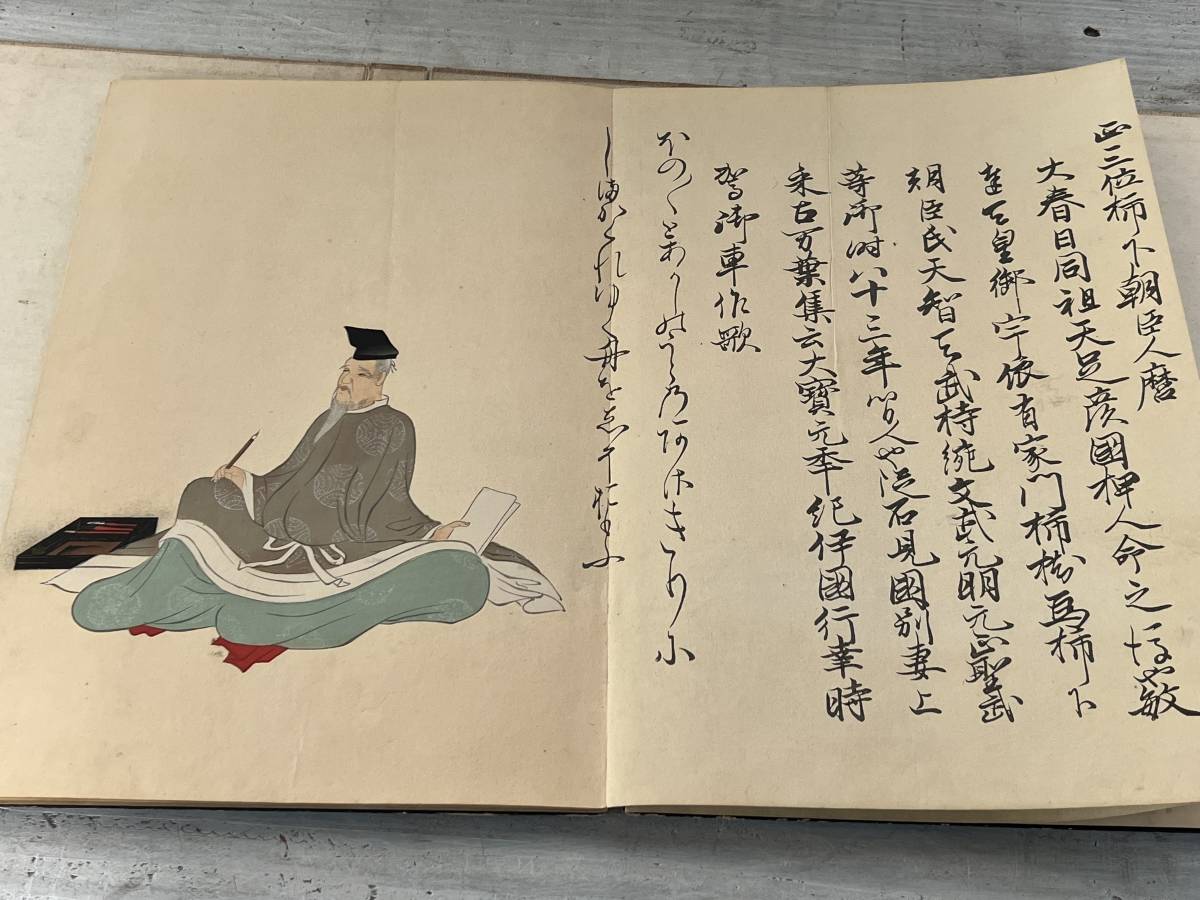 正三位柿下朝臣人麿
大春日同祖天足彦國押人命之後也敏
達天皇御宇依有家門柿樹為柿下
朝臣氏天智天武持統文武元明元正聖武
等御時八十三年間人也従石見國別妻上
来古万葉集云大寳元年紀伊國行幸時
駕御車作歌
ほの〱とあかしのうらのあさきりに
しまかくれゆく舟をしそおもふ